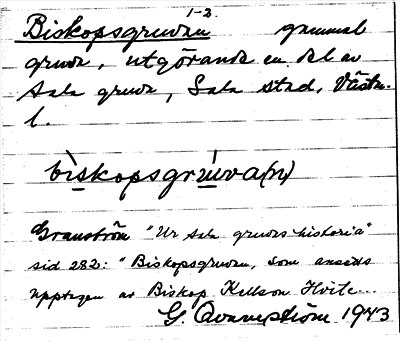 1-2.
Biskopsgruvan gammal
gruva, utgörande en del av
Sala gruva, Sala stad, Västm.
l.
biskopsgruva(n)
Granström "Ur Sala gruvas historia"
sid 282: "Biskopsgruvan, som ansetts
upptagen av Biskop Kettson Hvite...
G. Qvarnström 1943